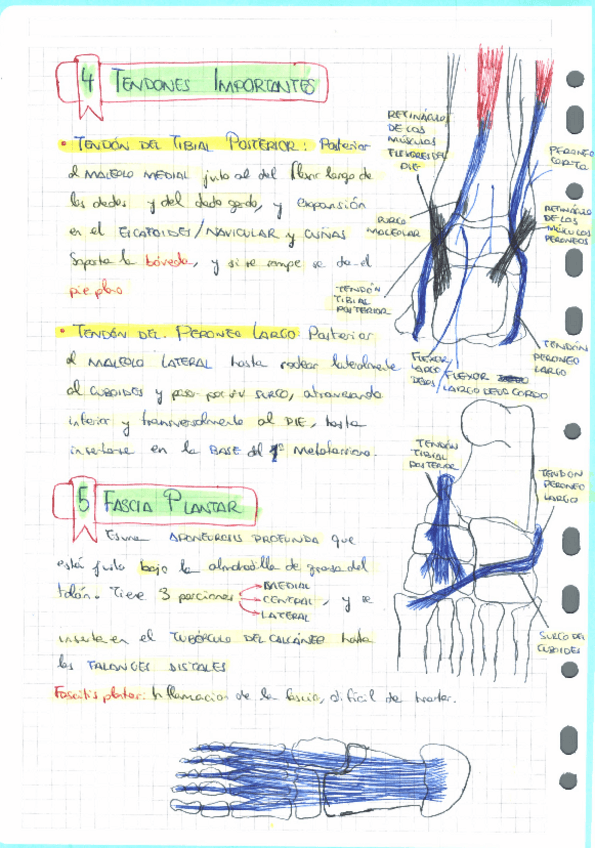 4 TENDONES IMPORTANTES
• TENDÓN DEL TIBIAL POSTERIOR: Posterior
al MALEOLO MEDIAL junto al del flexor largo de
los dedos y del dedo gordo, y expansión
en el ESCAFOIDES/NAVICULAR y CUÑAS
Soporta la bóveda, y si se rompe se da el
pie plano
• TENDÓN DEL PERONEO LARGO: Posterior
al MALEOLO LATERAL hasta rodear lateralmente
al CUBOIDES y pasar por su SURCO, atravesando
inferior y transversalmente al PIE, hasta
insertarse en la BASE del 1º Metatarsiano.
RETINÁCULO
DE LOS
MÚSCULOS
FLEXORES DEL
PIE
SURCO
MALEOLAR
TENDÓN
TIBIAL
POSTERIOR
PERONEO
CORTO
RETINÁCULO
DE LOS
MÚSCULOS
PERONEOS
TENDÓN
PERONEO
LARGO
FLEXOR
LARGO
DEDOS
FLEXOR
LARGO DEDO GORDO
5 FASCIA PLANTAR
Es una APONEUROSIS PROFUNDA que
está justo bajo la almohadilla de grasa del
talón. Tiene 3 porciones → MEDIAL
→ CENTRAL, y se
→ LATERAL
inserta en el TUBÉRCULO DEL CALCÁNEO hasta
las FALANGES DISTALES
Fascitis plantar: Inflamación de la fascia, difícil de tratar.
TENDÓN
TIBIAL
POSTERIOR
TENDON
PERONEO
LARGO
SURCO DEL
CUBOIDES